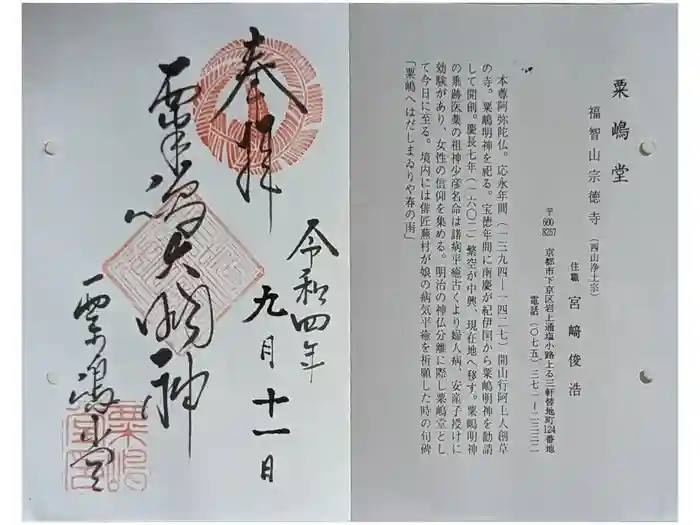 奉拝
粟嶋大明神
令和四年
九月十一日
粟嶋堂
粟嶋堂
福智山宗徳寺(西山浄土宗)
住職 宮﨑俊浩
〒600-8257 京都市下京区岩上通塩小路上る三軒替地町124番地
電話(〇七五)三七一―二三三二
本尊阿弥陀仏。応永年間(一三九四―一四二七)開山行阿上人創草
の寺。粟嶋明神を祀る。宝徳年間に南慶が紀伊国から粟嶋明神を勧請
して開創。慶長七年(一六〇二)繁空が中興、現在地へ移す。粟嶋明神
の垂跡医薬の祖神少彦名命は諸病平癒古くより婦人病、安産子授けに
効験があり、女性の信仰を集める。明治の神仏分離に際し粟嶋堂とし
て今日に至る。境内には俳匠蕪村が娘の病気平癒を祈願した時の句碑
「粟嶋へはだしまゐりや春の雨」